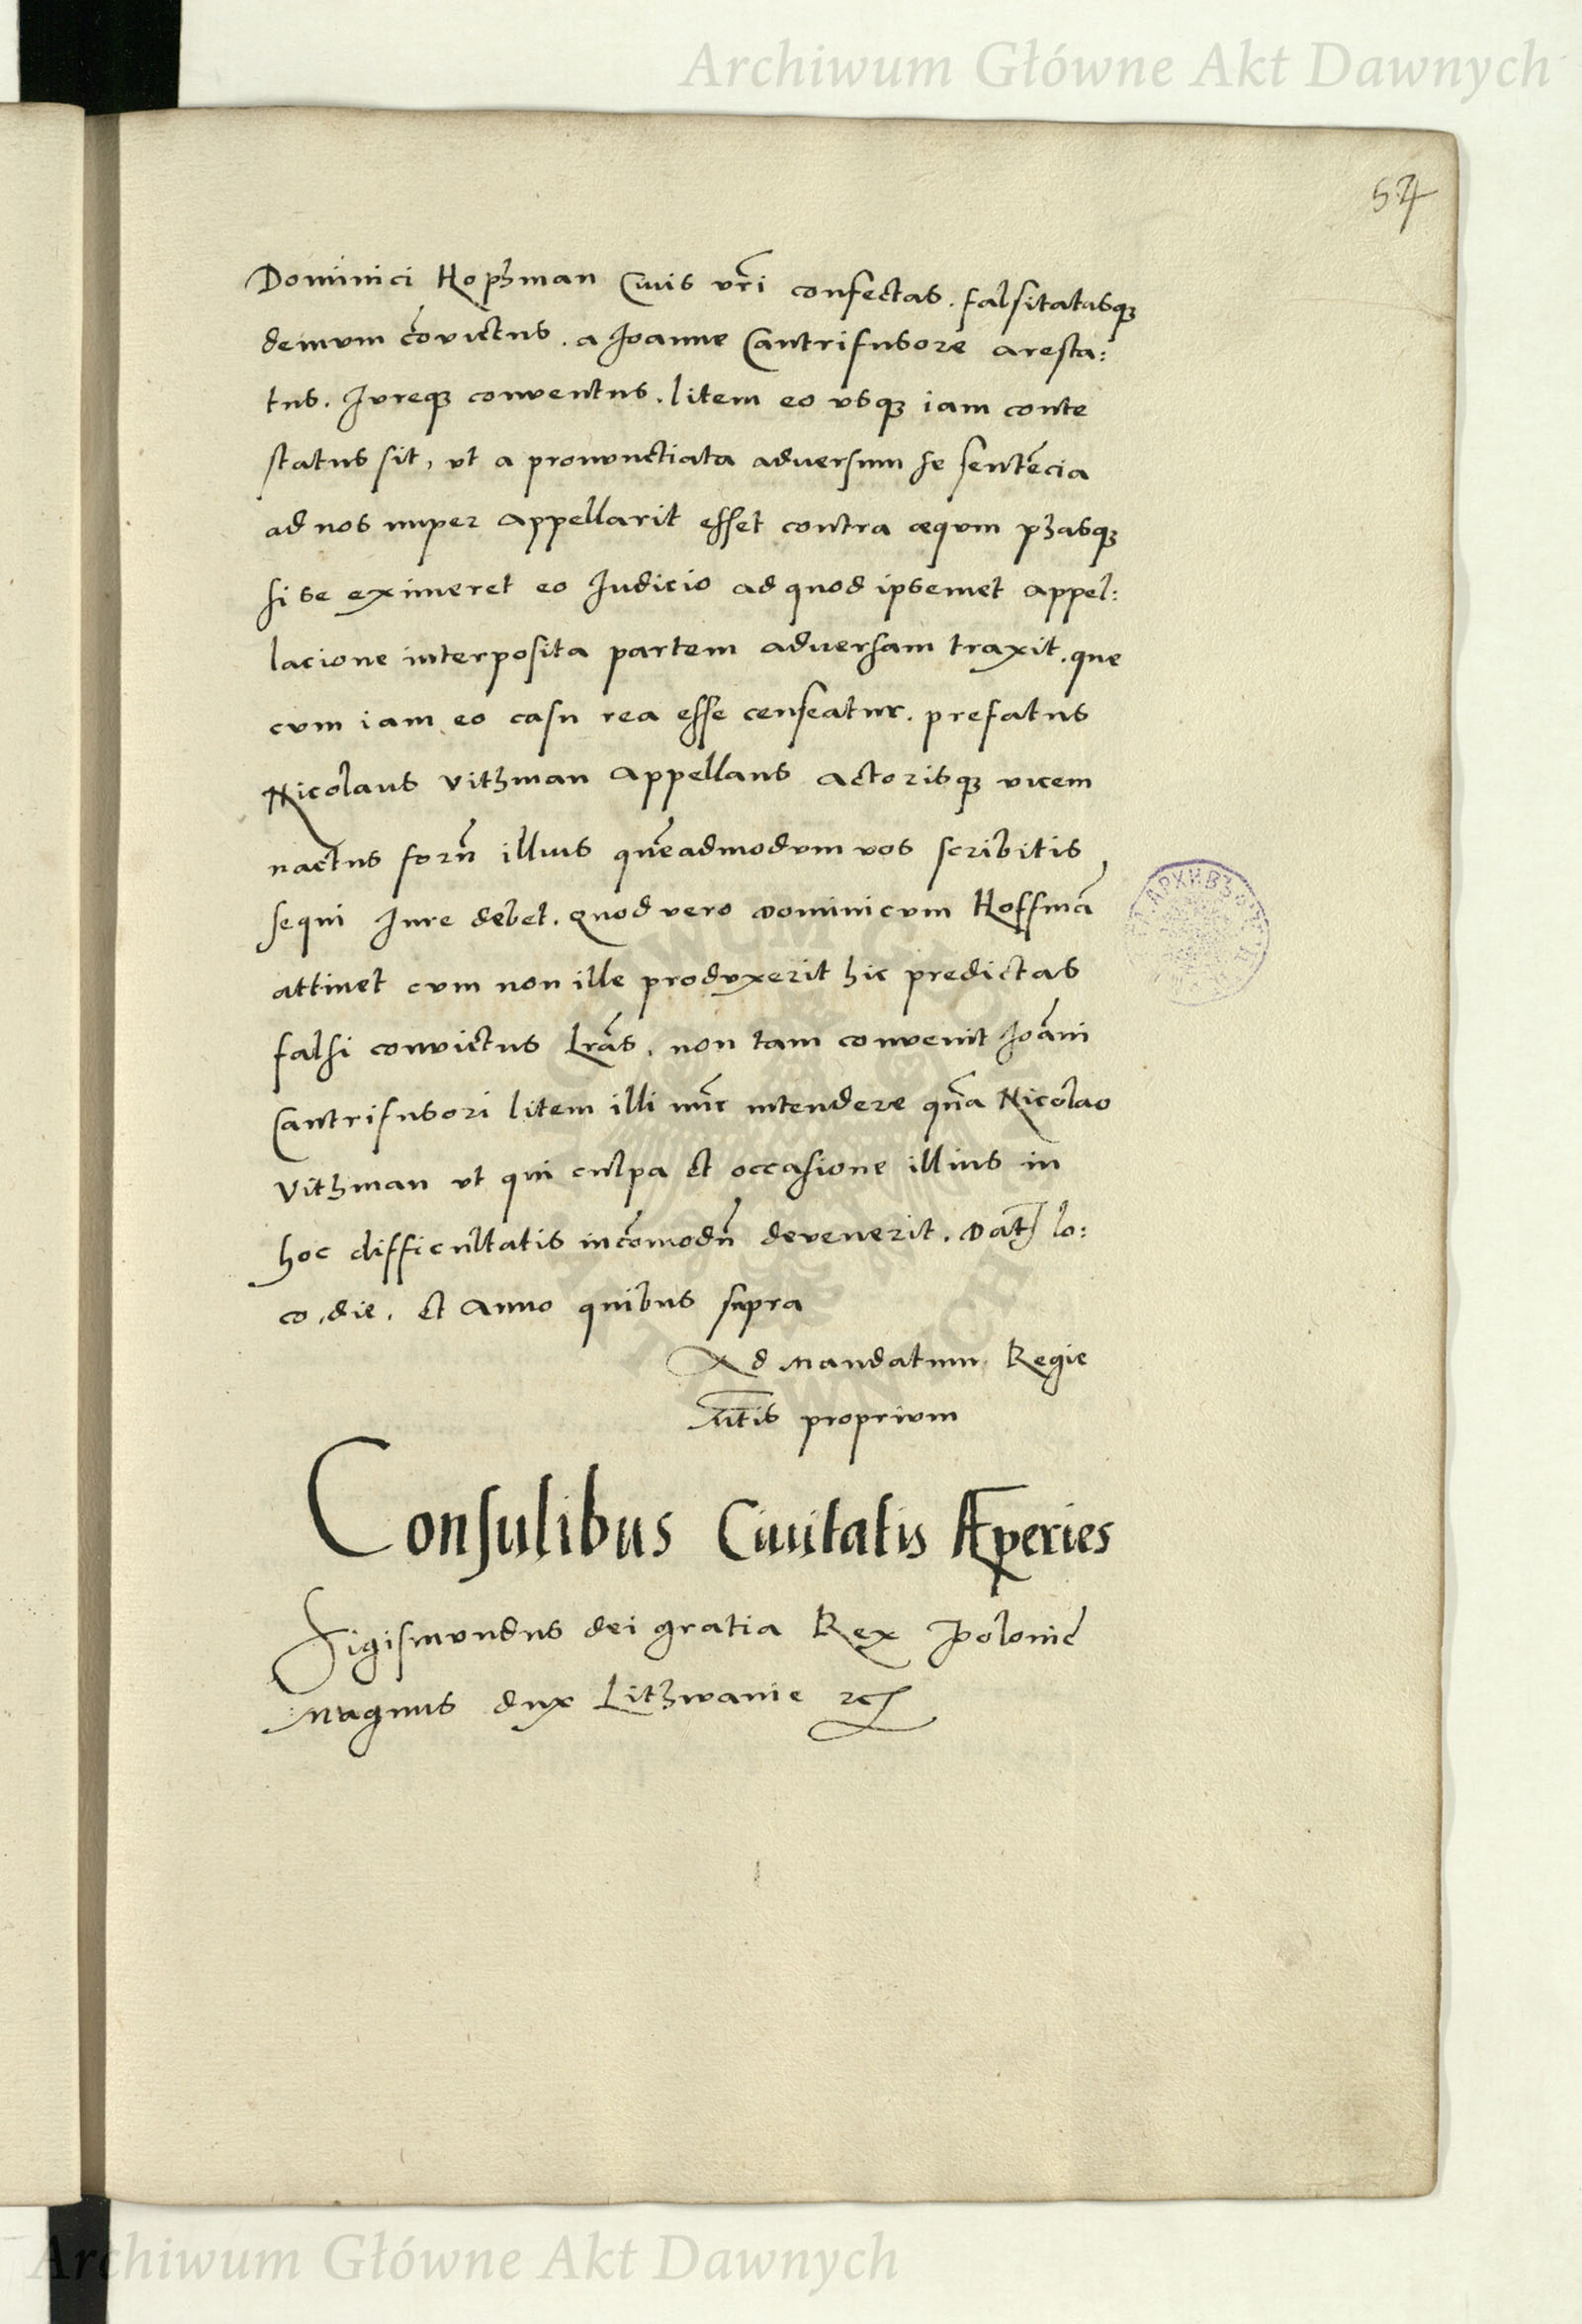 Archiwum Główne Akt Dawnych
54
Dominici Hophman Civis vr̃i confectas. falsitatisqꝫ
demvm cõvictus. a Joanne Cantrifusore aresta:
tus. Jvreqꝫ conventus. litem eo vsqꝫ iam conte
status sit, vt a pronvnctiata adversum se sentẽcia
ad nos nuper appellarit esset contra æqvm
si se eximeret eo Judicio ad quod ipsemet appel:
lacione interposita partem adversam traxit. que
cvm iam eo casu rea esse censeatur. prefatus
Nicolaus Vithman appellans actorisqꝫ vicem
nactus forũ illius quẽadmodvm vos scribitis
sequi Jure debet. quod vero Dominicvm Hoffmã
attinet cvm non ille prodvxerit hic predictas
falsi convictus lr̃as, non tam convenit Joãni
Cantrifusori litem illi nũc intendere qña Nicolao
Vithman vt qui culpa et occasione illius in
hoc difficultatis incõmodũ devenerit. Dat lo:
co, die, et Anno quibus supra
Ad Mandatum Regie
Mt̃is proprivm
Consulibus Ciuitatis Æperies
Sigismvndus dei gratia Rex Polonie
Magnus dux Lithwanie ꝛc
Archiwum Główne Akt Dawnych